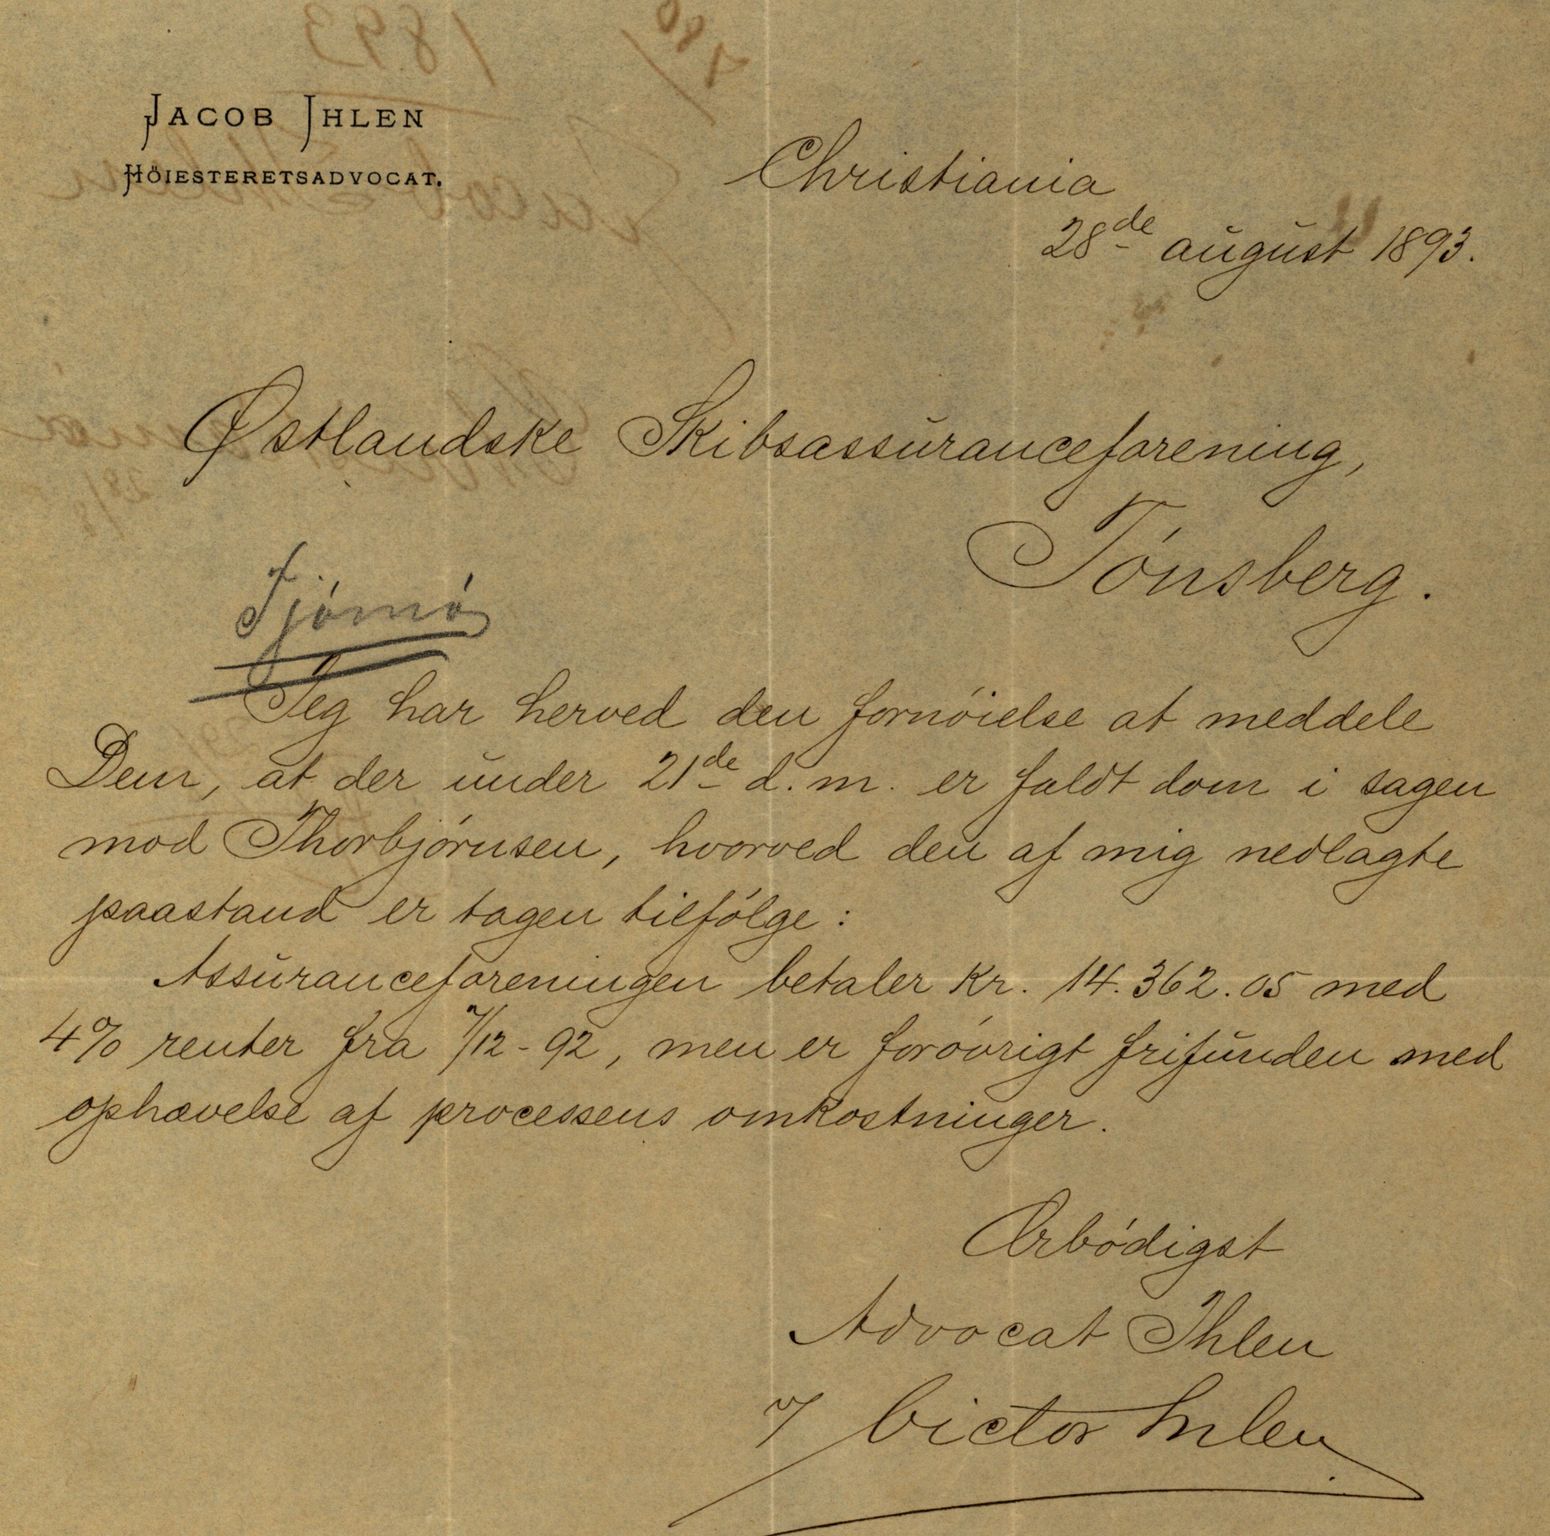 JACOB IHLEN
HÖIESTERETSADVOCAT.
Christiania
28de august 1893.
Østlandske Skibsassuranceforening,
Tónsberg.
Tjómó
Jeg har herved den fornóielse at meddele
Dem, at der under 21de d. m. er faldt dom i sagen
mod Thorbjórnsen, hvorved den af mig nedlagte
paastand er tagen tilfólge:
Assuranceforeningen betaler Kr. 14.362.05 med
4% renter fra 7/12-92, men er foróvrigt frifunden med
ophævelse af processens omkostninger.
Ærbódigst
Advocat Ihlen
v/ Victor Ihlen